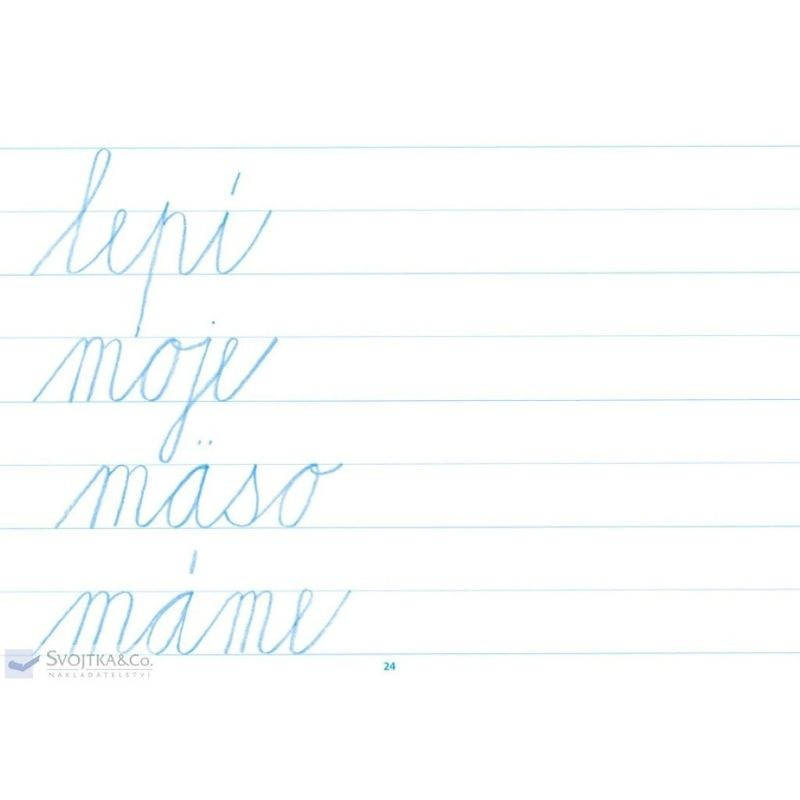 lepí
moje
mäso
máme
24
SVOJTKA&CO.
NAKLADATELSTVÍ